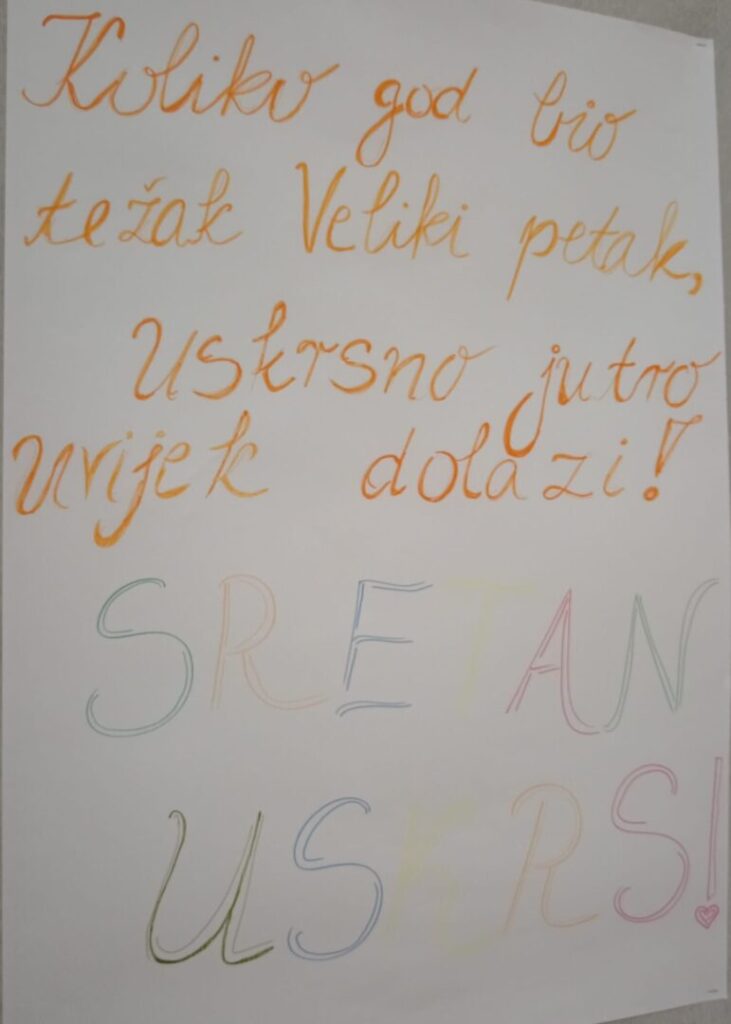 Koliko god bio
težak Veliki petak,
Uskrsno jutro
uvijek dolazi!
SRETAN
USKRS!